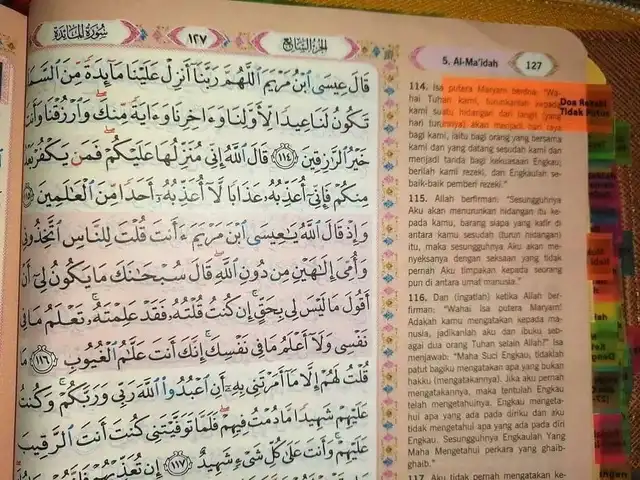 سُورَةُ المَائِدَة
١٢٧
الجُزْءُ السَّابِع
5. Al-Ma'idah
127
قَالَ عِيسَى ابْنُ مَرْيَمَ اللَّهُمَّ رَبَّنَا أَنزِلْ عَلَيْنَا مَآئِدَةً مِّنَ السَّمَا
تَكُونُ لَنَا عِيدًا لِّأَوَّلِنَا وَءَاخِرِنَا وَءَايَةً مِّنكَ وَارْزُقْنَا وَأَنتَ
خَيْرُ الرَّازِقِينَ ﴿١١٤﴾ قَالَ اللَّهُ إِنِّي مُنَزِّلُهَا عَلَيْكُمْ فَمَن يَكْفُرْ بَعْدُ
مِنكُمْ فَإِنِّي أُعَذِّبُهُ عَذَابًا لَّا أُعَذِّبُهُ أَحَدًا مِّنَ الْعَالَمِينَ
وَإِذْ قَالَ اللَّهُ يَاعِيسَى ابْنَ مَرْيَمَ ءَأَنتَ قُلْتَ لِلنَّاسِ اتَّخِذُونِي
وَأُمِّيَ إِلَهَيْنِ مِن دُونِ اللَّهِ قَالَ سُبْحَانَكَ مَا يَكُونُ لِي أَنْ
أَقُولَ مَا لَيْسَ لِي بِحَقٍّ إِن كُنتُ قُلْتُهُ فَقَدْ عَلِمْتَهُ تَعْلَمُ مَا فِي
نَفْسِي وَلَا أَعْلَمُ مَا فِي نَفْسِكَ إِنَّكَ أَنتَ عَلَّامُ الْغُيُوبِ ﴿١١٦﴾ مَا
قُلْتُ لَهُمْ إِلَّا مَا أَمَرْتَنِي بِهِ أَنِ اعْبُدُوا اللَّهَ رَبِّي وَرَبَّكُمْ وَكُنتُ
عَلَيْهِمْ شَهِيدًا مَّا دُمْتُ فِيهِمْ فَلَمَّا تَوَفَّيْتَنِي كُنتَ أَنتَ الرَّقِيبَ
عَلَيْهِمْ وَأَنتَ عَلَى كُلِّ شَيْءٍ شَهِيدٌ ﴿١١٧﴾ إِن تُعَذِّبْهُمْ
114. Isa putera Maryam berdoa: "Wa-
hai Tuhan kami, turunkanlah kepada
kami suatu hidangan dari langit (yang
hari turunnya) akan menjadi hari raya
bagi kami, iaitu bagi orang yang bersama
kami dan yang datang sesudah kami dan
menjadi tanda bagi kekuasaan Engkau;
berilah kami rezeki, dan Engkaulah se-
baik-baik pemberi rezeki."
115. Allah berfirman: "Sesungguhnya
Aku akan menurunkan hidangan itu ke-
pada kamu, barang siapa yang kafir di
antara kamu sesudah (turun hidangan)
itu, maka sesungguhnya Aku akan me-
nyeksanya dengan seksaan yang tidak
pernah Aku timpakan kepada seorang
pun di antara umat manusia."
116. Dan (ingatlah) ketika Allah ber-
firman: "Wahai Isa putera Maryam!
Adakah kamu mengatakan kepada ma-
nusia, jadikanlah aku dan ibuku seb-
agai dua orang Tuhan selain Allah?" Isa
menjawab: "Maha Suci Engkau, tidaklah
patut bagiku mengatakan apa yang bukan
hakku (mengatakannya). Jika aku pernah
mengatakan, maka tentulah Engkau
telah mengetahuinya. Engkau mengeta-
hui apa yang ada pada diriku dan aku
tidak mengetahui apa yang ada pada diri
Engkau. Sesungguhnya Engkaulah Yang
Maha Mengetahui perkara yang ghaib-
ghaib."
117. Aku tidak pernah mengatakan ke-
Doa Rezeki
Tidak Putus